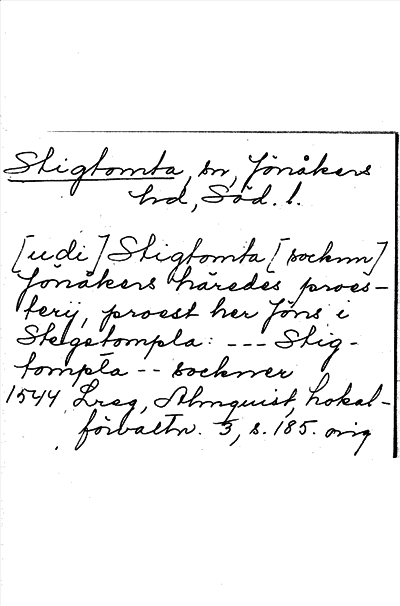 Stigtomta, sn, Jönåkers
hd, Söd. l.
[udi] Stigtomta [socknn]
Jönåkers häredes proes-
terij, proest her Jöns i
Stegetompla: --- Stig-
tompta -- sockner
1544 Lreg, Almquist, Lokal-
förvaltn. 3, s. 185. orig